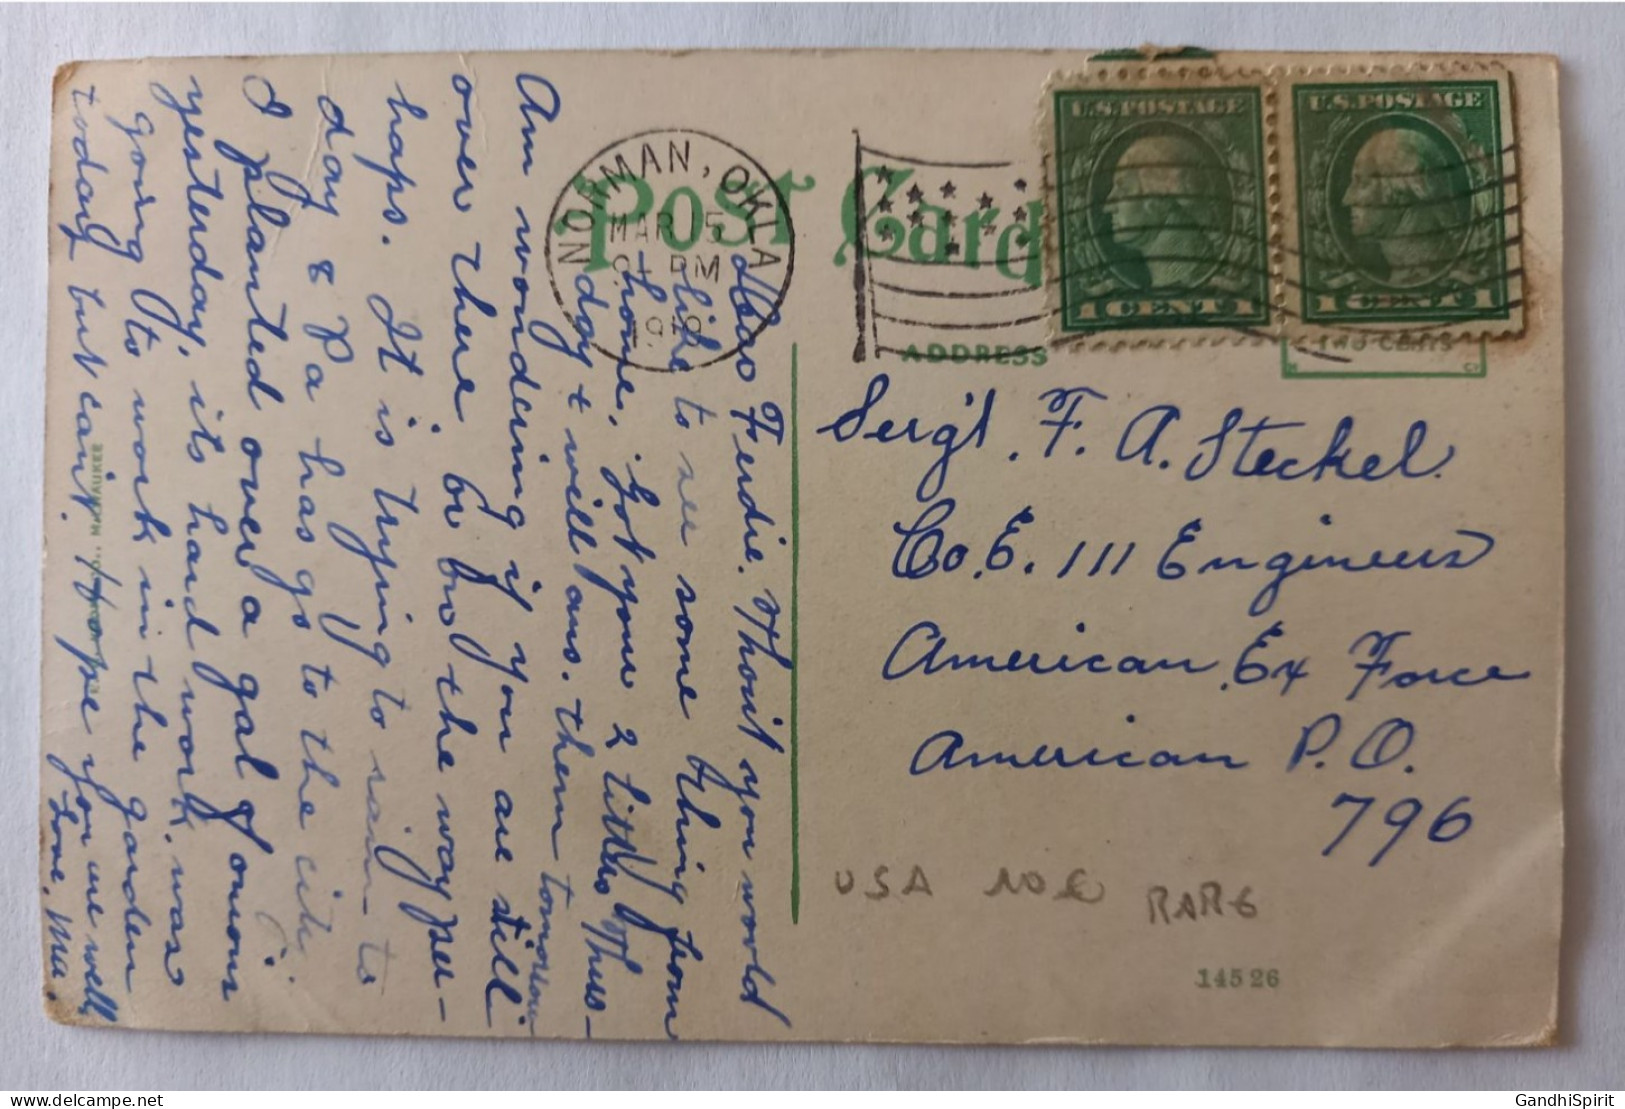 Post Card
NORMAN, OKLA
MAR 15
PM
1919
U.S. POSTAGE
1 CENT 1
U.S. POSTAGE
1 CENT 1
ADDRESS
TWO CENTS
Hello Ferdie. Thout you would
like to see some thing from
home. Got your 2 little Thurs-
day & will ans. them tomorrow
Am wondering if you are still
over there, or on the way per-
haps. It is trying to rain to
day & Pa has go to the city.
I planted over a gal of onions
yesterday, its hard work. was
going to work in the garden
today but cant. Hope you are well,
Love, Ma.
Serg't. F. A. Steckel
Co. E. 111 Engineers
American Ex Force
American P. O.
796
USA
RAR6
14526
MILWAUKEE
GandhiSpirit